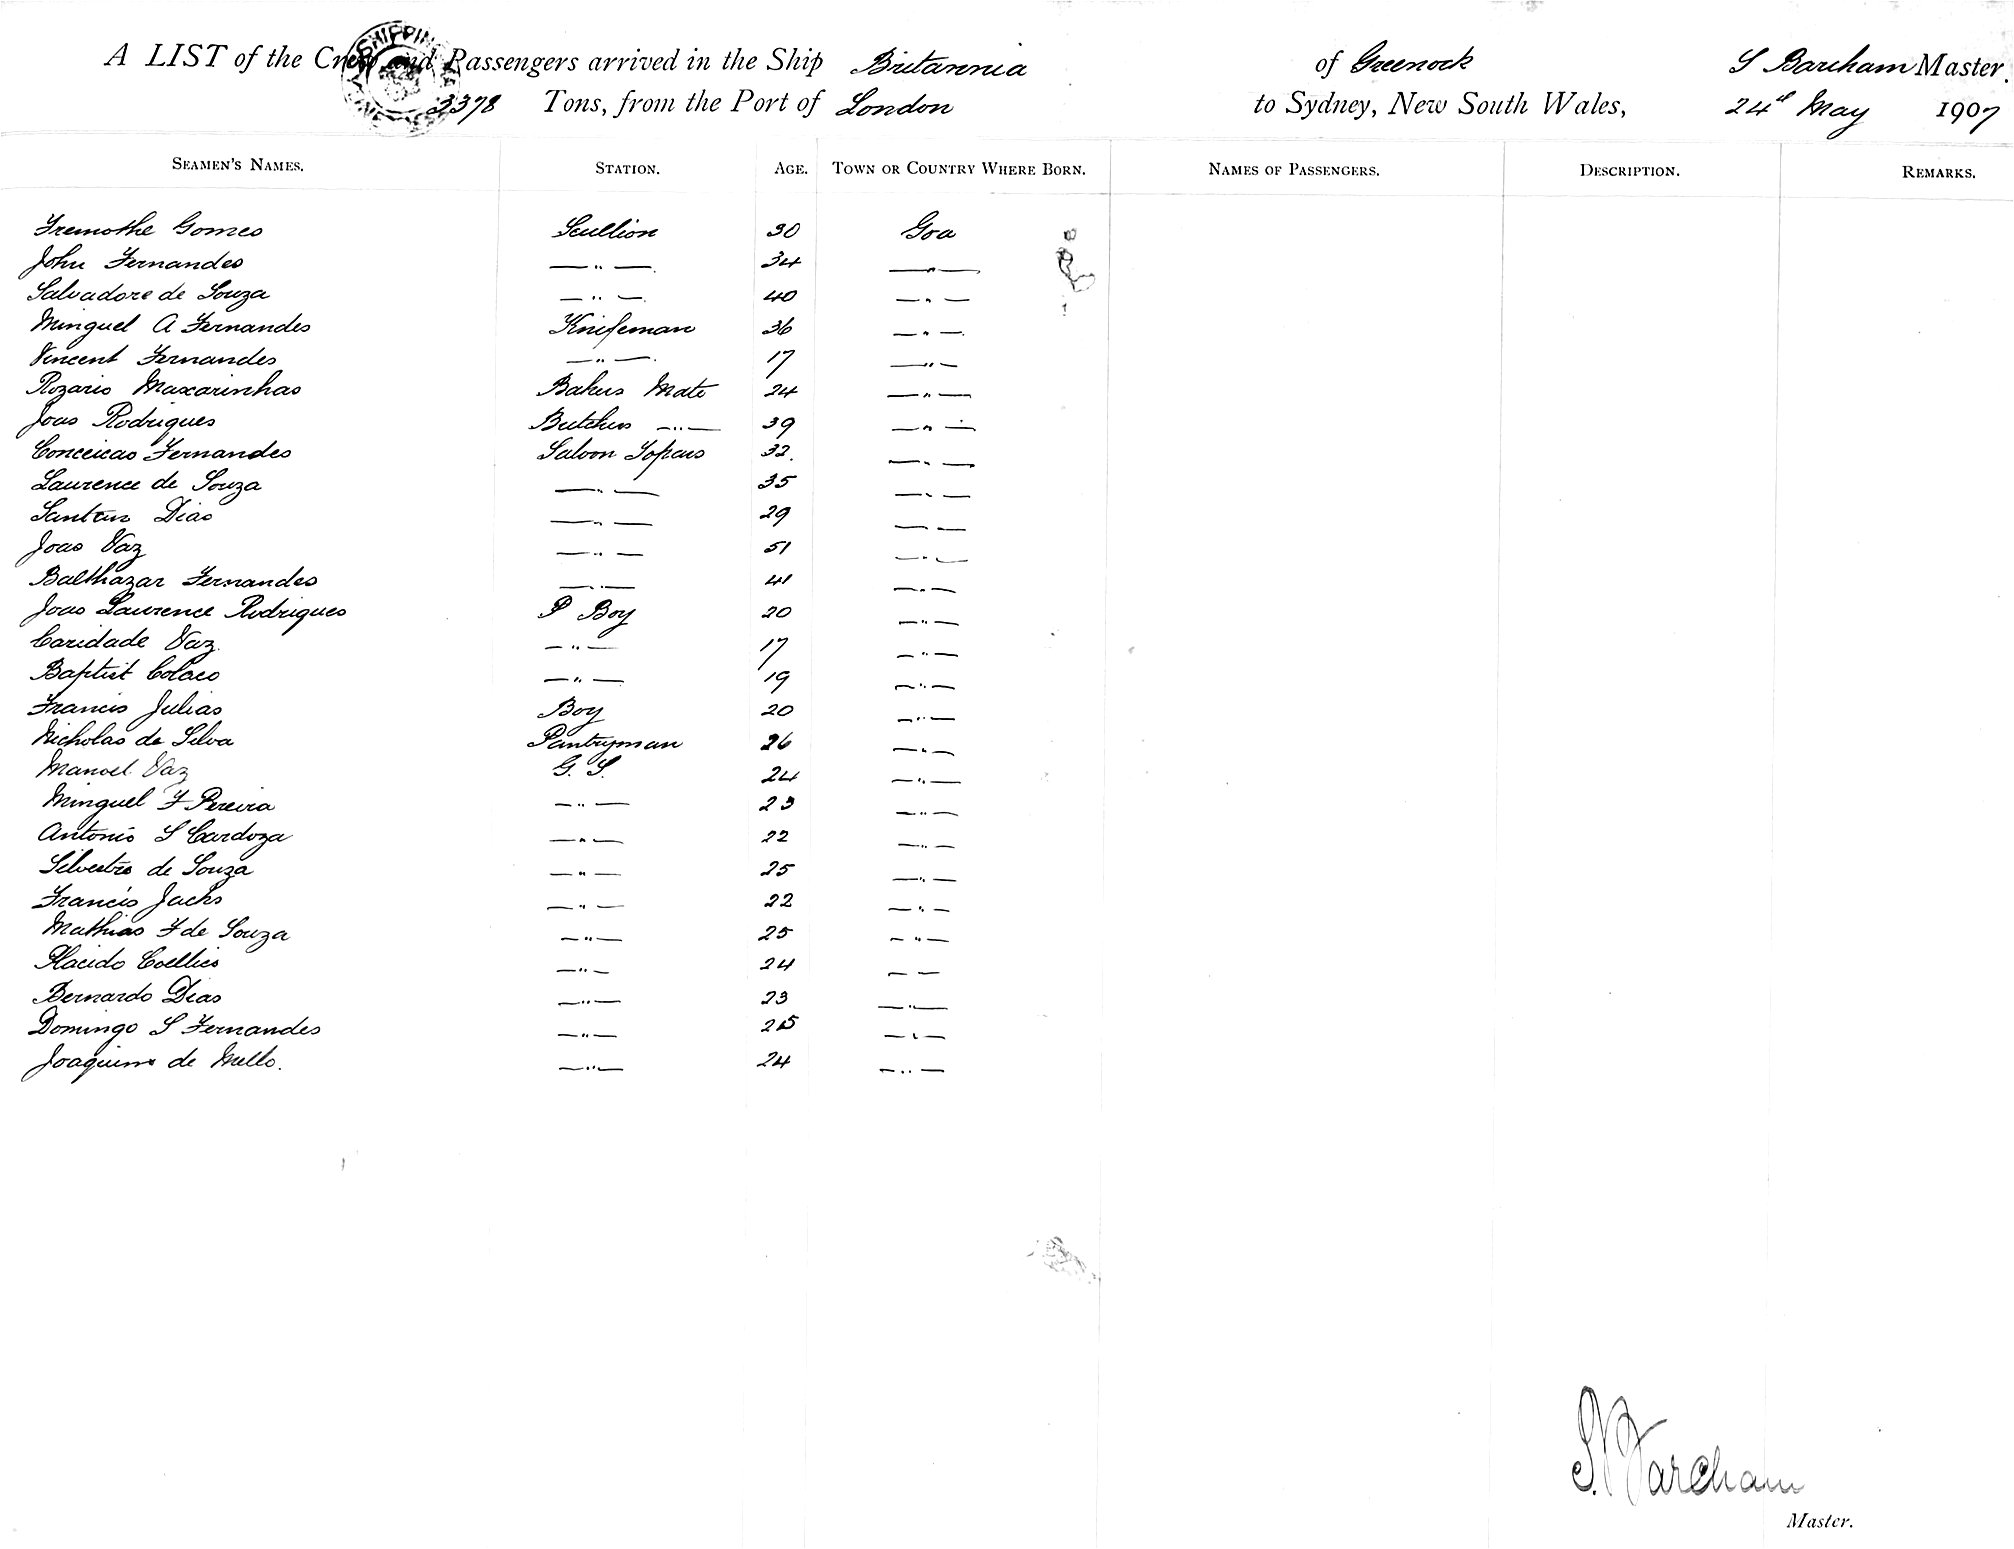 A LIST of the Crew and Passengers arrived in the Ship Britannia of Greenock S Barcham Master.
3378 Tons, from the Port of London to Sydney, New South Wales, 24th May 1907
SEAMEN'S NAMES. STATION. AGE. TOWN OR COUNTRY WHERE BORN. NAMES OF PASSENGERS. DESCRIPTION. REMARKS.
Fremothe Gomes Scullion 30 Goa
John Fernandes —"— 34 —"—
Salvadore de Souza —"— 40 —"—
Minguel A Fernandes Knifeman 36 —"—
Vincent Fernandes —"— 17 —"—
Rozario Maxarinhas Bakers Mate 24 —"—
Joao Rodrigues Butchers —"— 39 —"—
Conceicao Fernandes Saloon Topaus 32. —"—
Laurence de Souza —"— 35 —"—
Santan Dias —"— 29 —"—
Joao Vaz —"— 51 —"—
Balthazar Fernandes —"— 41 —"—
Joao Laurence Rodrigues P Boy 20 —"—
Caridade Vaz —"— 17 —"—
Baptist Colaco —"— 19 —"—
Francis Julias Boy 20 —"—
Nicholas de Silva Pantryman 26 —"—
Manoel Vaz G. S. 24 —"—
Minguel F Pereira —"— 23 —"—
Antonio S Cardoza —"— 22 —"—
Silvestre de Souza —"— 25 —"—
Francis Jacks —"— 22 —"—
Mathias F de Souza —"— 25 —"—
Placido Coellies —"— 24 — —
Bernardo Dias —"— 23 —"—
Domingo S Fernandes —"— 25 —"—
Joaquim de Mello. —"— 24 —"—
S. Barcham
Master.